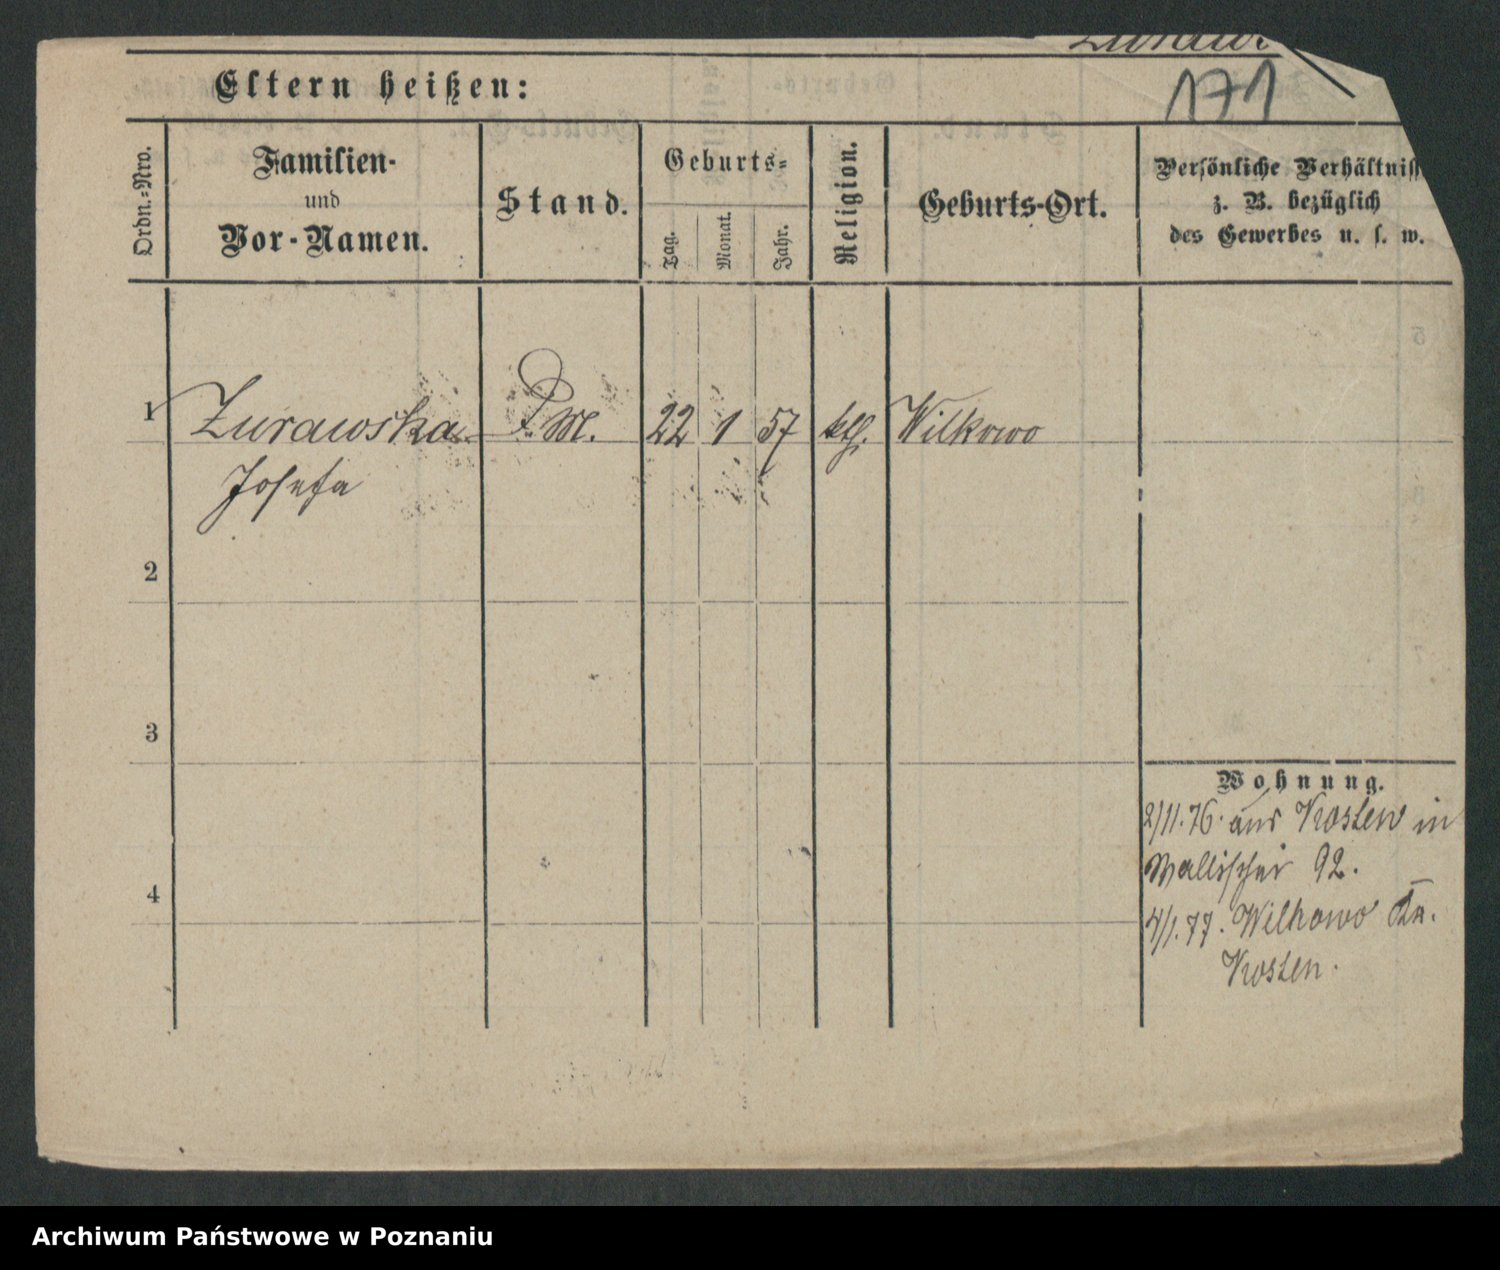 Zuraw.
171
Eltern heißen:
Ordn.-Nro.
Familien-
und
Vor-Namen.
Stand.
Geburts-
Tag.
Monat.
Jahr.
Religion.
Geburts-Ort.
Persönliche Verhältniss
z. B. bezüglich
des Gewerbes u. s. w.
1 Zurawska M. 22 1 57 kth. Wilkowo
Josefa
2
3
4
Wohnung.
2/11.76. aus Kosten in
Wallischei 92.
4/1.77. Wilkowo Kr.
Kosten.
Archiwum Państwowe w Poznaniu